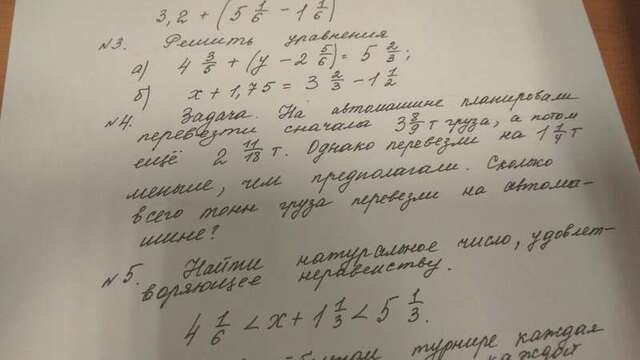 3,2 + (5 1/6 − 1 1/6)
№3. Решить уравнения
а) 4 3/5 + (y − 2 5/6) = 5 2/3;
б) x + 1,75 = 3 2/3 − 1 1/2
№4. Задача. На автомашине планировали
перевезти сначала 3 8/9 т груза, а потом
ещё 2 11/18 т. Однако перевезли на 1 1/4 т
меньше, чем предполагали. Сколько
всего тонн груза перевезли на автома-
шине?
№5. Найти натуральное число, удовлет-
воряющее неравенству.
4 1/6 < x + 1 1/3 < 5 1/3.
турнире каждая